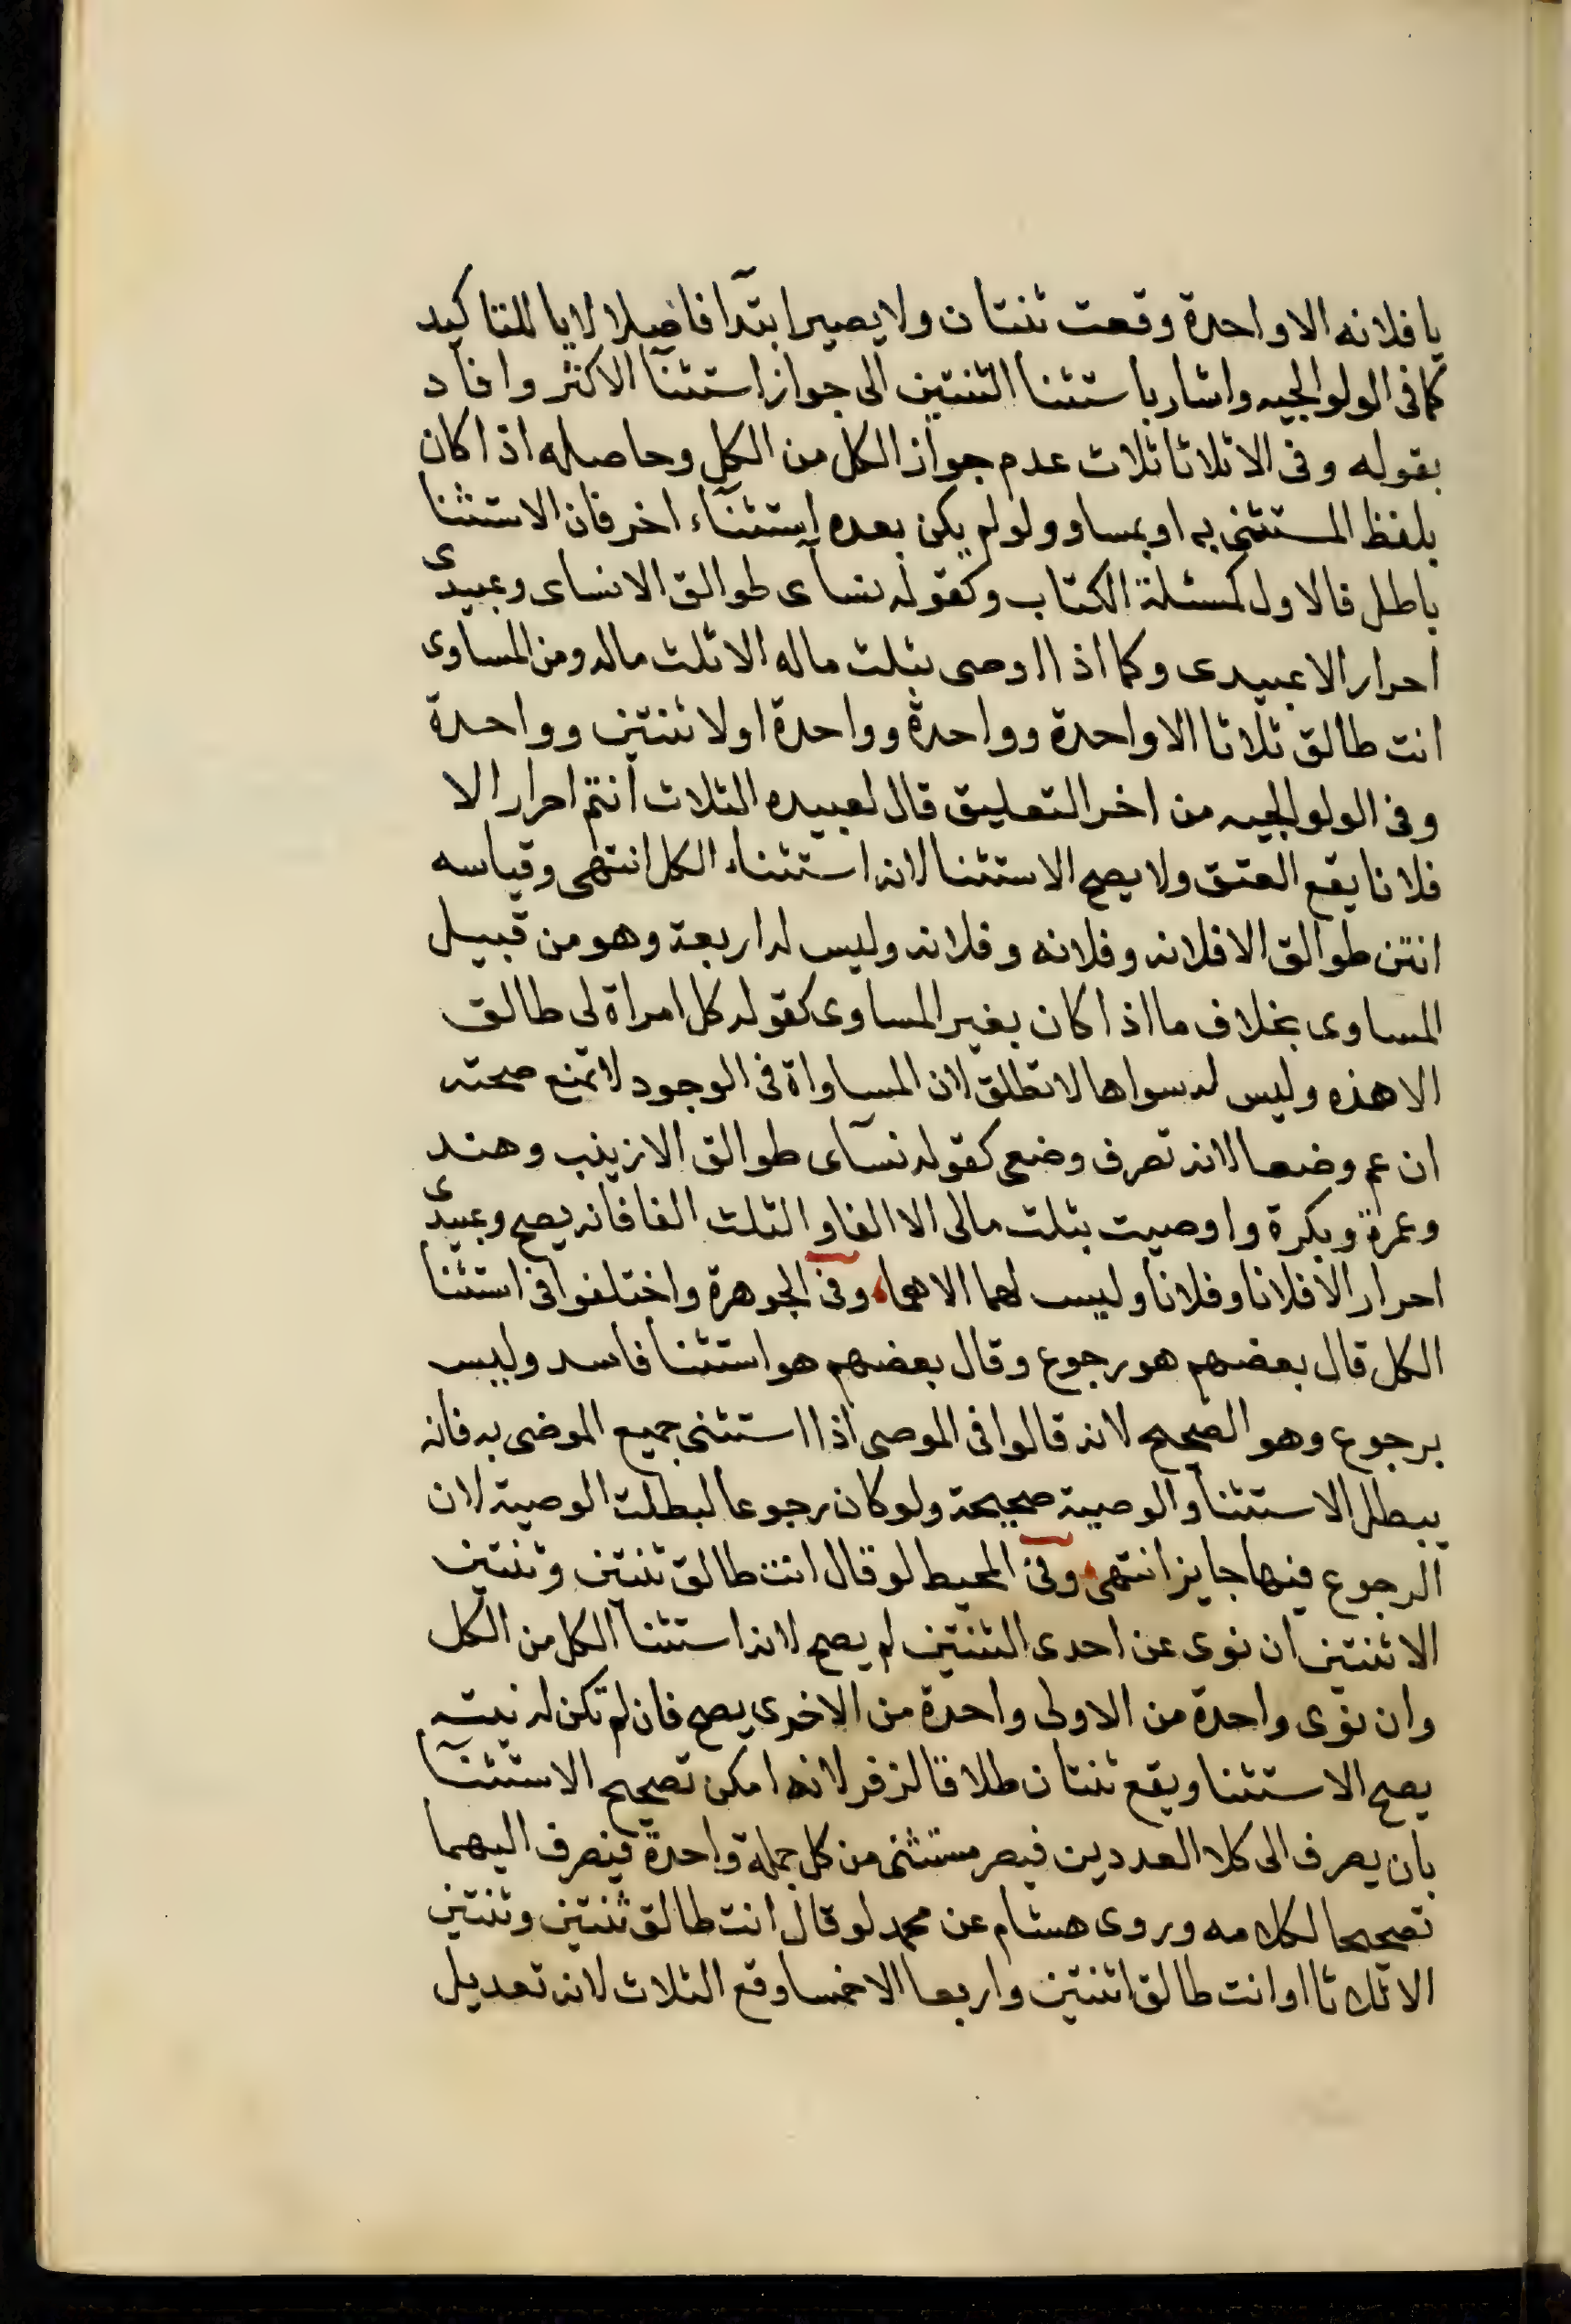 يا فلانه الا واحدة وقعت ثنتان ولا يصير ابتدآ فاضلا لا يا للتاكيد
كما فى الولوالجيه واشار باستثنا الثنتين الى جواز استثنآ الاكثر وافاد
بقوله وفى الا ثلاثا ثلاث عدم جواز الكل من الكل وحاصله اذا كان
بلفظ المستثنى به او بمساو ولو لم يكن بعده استثنآء اخر فان الاستثنا
باطل فالاول كمسئلة الكتاب وكقوله نسآى طوالق الا نساى وعبيدى
احرار الا عبيدى وكما اذا اوصى بثلث ماله الا ثلث ماله ومن المساوى
انت طالق ثلاثا الا واحدة وواحدة وواحدة او لا ثنتين وواحدة
وفى الولوالجيه من اخر التعليق قال لعبيده الثلاث انتم احرار الا
فلانا يقع العتق ولا يصح الاستثنا لانه استثناء الكل انتهى وقياسه
انتن طوالق الا فلانه وفلانه وفلانه وليس له اربعة وهو من قبيل
المساوى بخلاف ما اذا كان بغير المساوى كقوله كل امراة لى طالق
الا هذه وليس له سواها لا تطلق لان المساواة فى الوجود لا تمنع صحته
ان عم وضعا لانه تصرف وضعى كقوله نسآى طوالق الا زينب وهند
وعمرة وبكرة واوصيت بثلث مالى الا الفا والثلث الفا فانه يصح وعبيدى
احرار الا فلانا وفلانا وليس لهما الاهما وفى الجوهرة واختلفوا فى استثنا
الكل قال بعضهم هو رجوع وقال بعضهم هو استثنا فاسد وليس
برجوع وهو الصحيح لانه قالوا فى الموصى اذا استثنى جميع الموضى به فانه
يبطل الاستثنا والوصية صحيحة ولو كان رجوعا لبطلت الوصية لان
الرجوع فيها جايز انتهى وفى المحيط لو قال انت طالق ثنتين وثنتين
الا ثنتين ان نوى عن احدى الثنتين لم يصح لانه استثنا الكل من الكل
وان نوى واحدة من الاولى واحدة من الاخرى يصح فان لم تكن له نيته
يصح الاستثنا ويقع ثنتان طلاقا لزفر لانه امكن تصحيح الاستثنآ
بان يصرف الى كلا العددين فيصر مستثنى من كل جملة واحدة فيصرف اليهما
تصحيحا لكلامه وروى هشام عن محمد لو قال انت طالق ثنتين وثنتين
الا ثلاثا او انت طالق اثنتين واربعا الا خمسا وقع الثلاث لانه تعديل